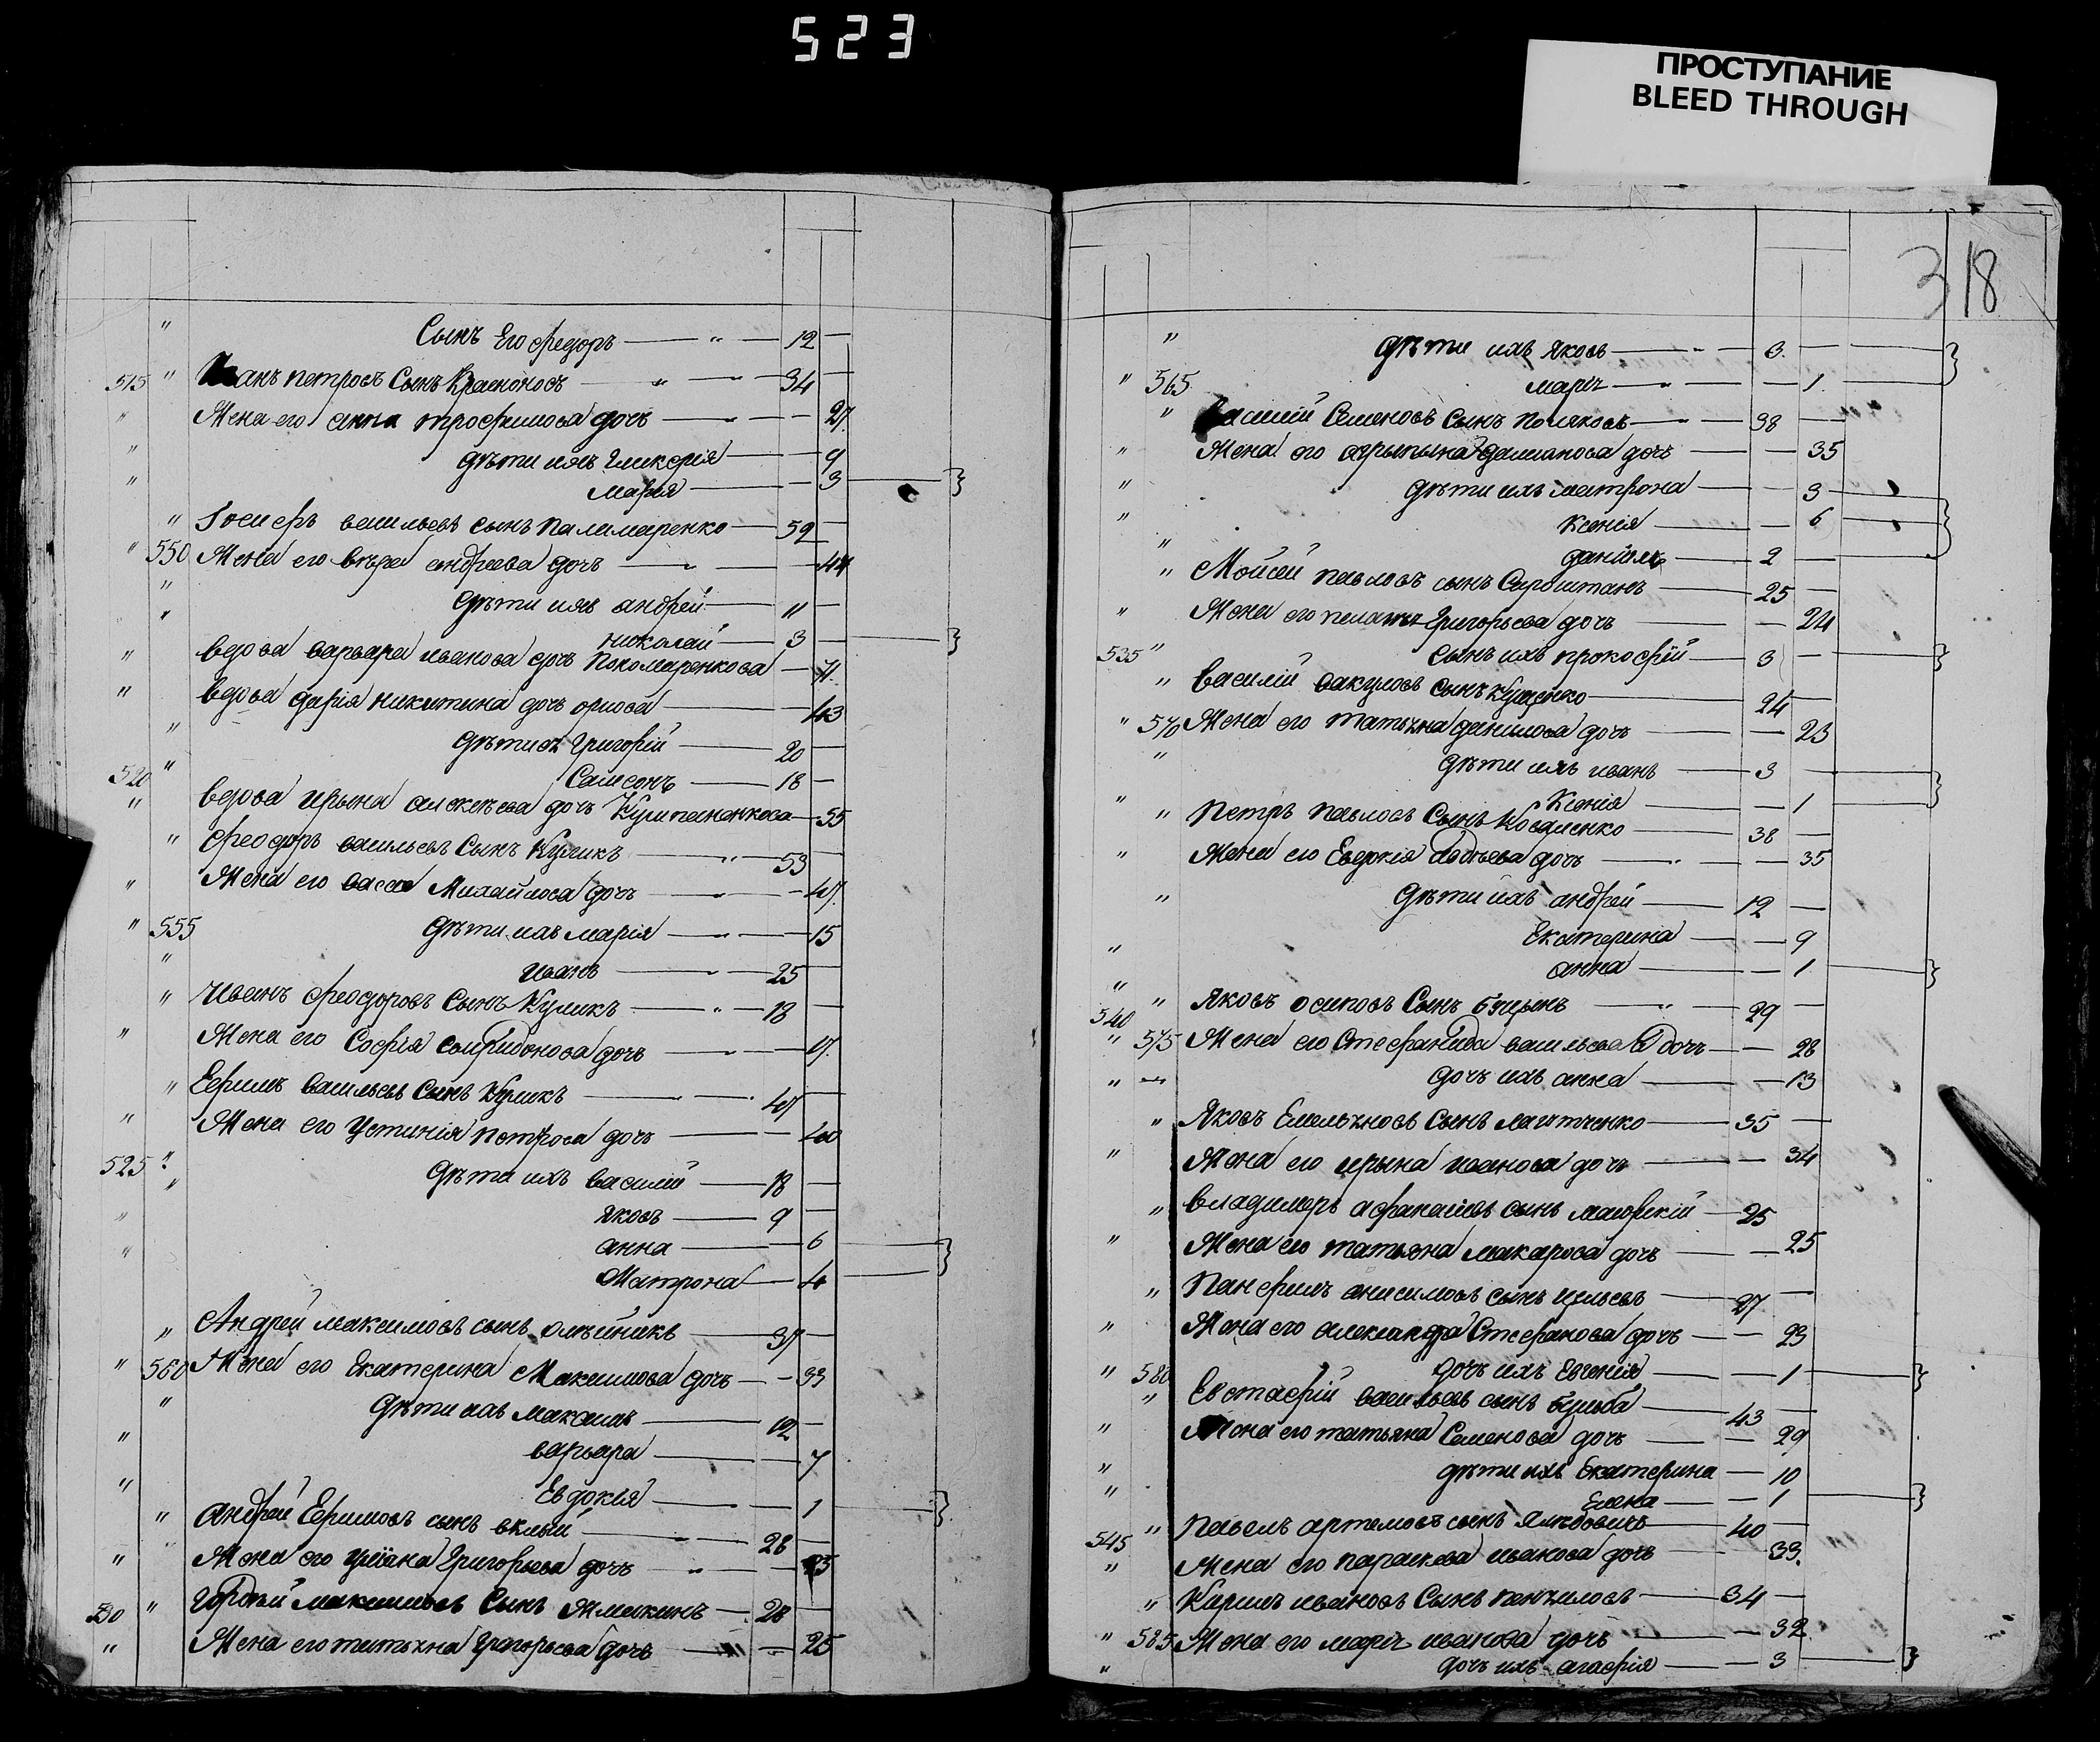 523
ПРОСТУПАНИЕ
BLEED THROUGH
318
" Сынъ Его Федоръ — " — 12 —
515 " Иванъ петровъ Сынъ Красоносъ — " — 34 —
" Жена его анна трофимова дочь — 27.
" дѣти ихъ Гликерія — 9
" Марія — 3
" Іосифъ васильевъ сынъ паламаренко — 52 —
" 550 Жена его вѣра андреева дочь — 44
" дѣти ихъ андрей — 11 —
" николай — 3 —
" вдова варвара иванова дочь Покомаренкова — 71.
" вдова дарія никитина дочь орлова — 43
" дѣти ея Григорій — 20 —
520 " Самсонъ — 18 —
" вдова ирина алексѣева дочь — 55
" Феодоръ васильевъ Сынъ Куликъ — " — 53 —
" Жена его васса Михайлова дочь — 47.
" 555 дѣти ихъ марія — 15
" иванъ — 25 —
" Иванъ Феодоровъ Сынъ Куликъ — " — 18 —
" Жена его Софія Спиридонова дочь — 17.
" Ефимъ Васильевъ Сынъ Куликъ — 47 —
" Жена его Устинія петрова дочь — 40
525 " дѣти ихъ василій — 18 —
" яковъ — 9 —
" анна — 6
" Матрона — 4
" Андрей максимовъ сынъ олѣйникъ — 37 —
" 560 Жена его Екатерина Максимова дочь — 33
" дѣти ихъ максимъ — 12 —
" варвара — 7
" Евдокія — 1
" андрей Ефимовъ сынъ — 26 —
" Жена его Григорьева дочь — " — 23
530 " Гордѣй максимовъ Сынъ — 28 —
" Жена его татьяна Григорьева дочь — 25
" дѣти ихъ Яковъ — 3. —
" 565 марія — 1.
" Василій Семеновъ Сынъ поляковъ — 38 —
" Жена его агрыпына дочь — 35
" дѣти ихъ матрона — 3
" Ксенія — 6
" даніилъ — 2 —
" Мойсей павловъ сынъ — 25 —
" Жена его Григорьева дочь — 24
535 " сынъ ихъ прокофій — 3 —
" Василій вакуловъ сынъ Куценко — 24 —
" 570 Жена его татьяна данилова дочь — 23
" дѣти ихъ иванъ — 3 —
" Ксенія — 1
" Петръ павловъ Сынъ Коваленко — 38 —
" Жена его Евдокія дочь — 35
" дѣти ихъ андрей — 12 —
" Екатерина — 9
" анна — 1
540 " Яковъ осиповъ Сынъ — " — 29 —
" 575 Жена его Стефанида васильева дочь — 28
" дочь ихъ анна — 13
" Яковъ Емельяновъ Сынъ — 35 —
" Жена его ирына иванова дочь — 34
" владимеръ афанасіевъ сынъ — 25
" Жена его татьяна макарова дочь — 25
" Панфилъ анисимовъ сынъ — 27 —
" Жена его александра Стефанова дочь — 23
" 580 дочь ихъ Евгенія — 1
" Евстафій васильевъ сынъ бульба — 43 —
" Жена его татьяна Семенова дочь — 29
" дѣти ихъ Екатерина — 10
" Елена — 1
545 " Павелъ артемовъ сынъ — 40 —
" Жена его параскева иванова дочь — 33.
" Карпъ ивановъ Сынъ — 34 —
" 585 Жена его марія иванова дочь — 32
" дочь ихъ агафія — 3